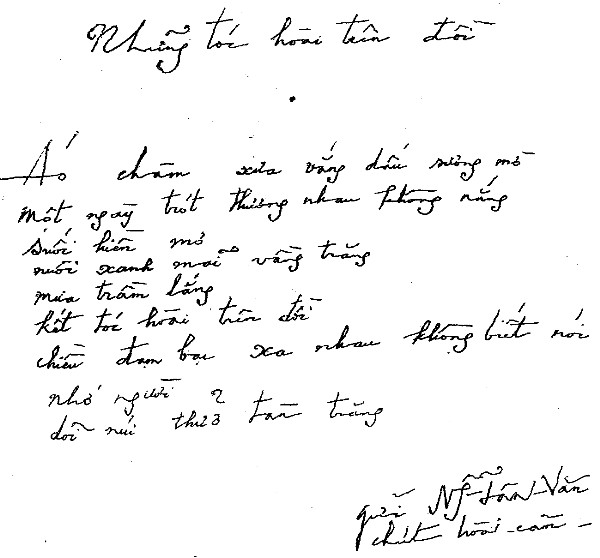 Những tóc hoài trên đồi
Áo chàm xưa vắng dấu sương mờ
Một ngày trót thương nhau không nắng
suối hiền mơ
nuôi xanh mãi vầng trăng
mưa trầm lắng
kết tóc hoài trên đồi
chiều đạm bạc xa nhau không biết nói
nhớ người 2
dõi núi thứ 3 tàn trăng
gửi Ng~ Tấn Văn
chút hoài cảm -